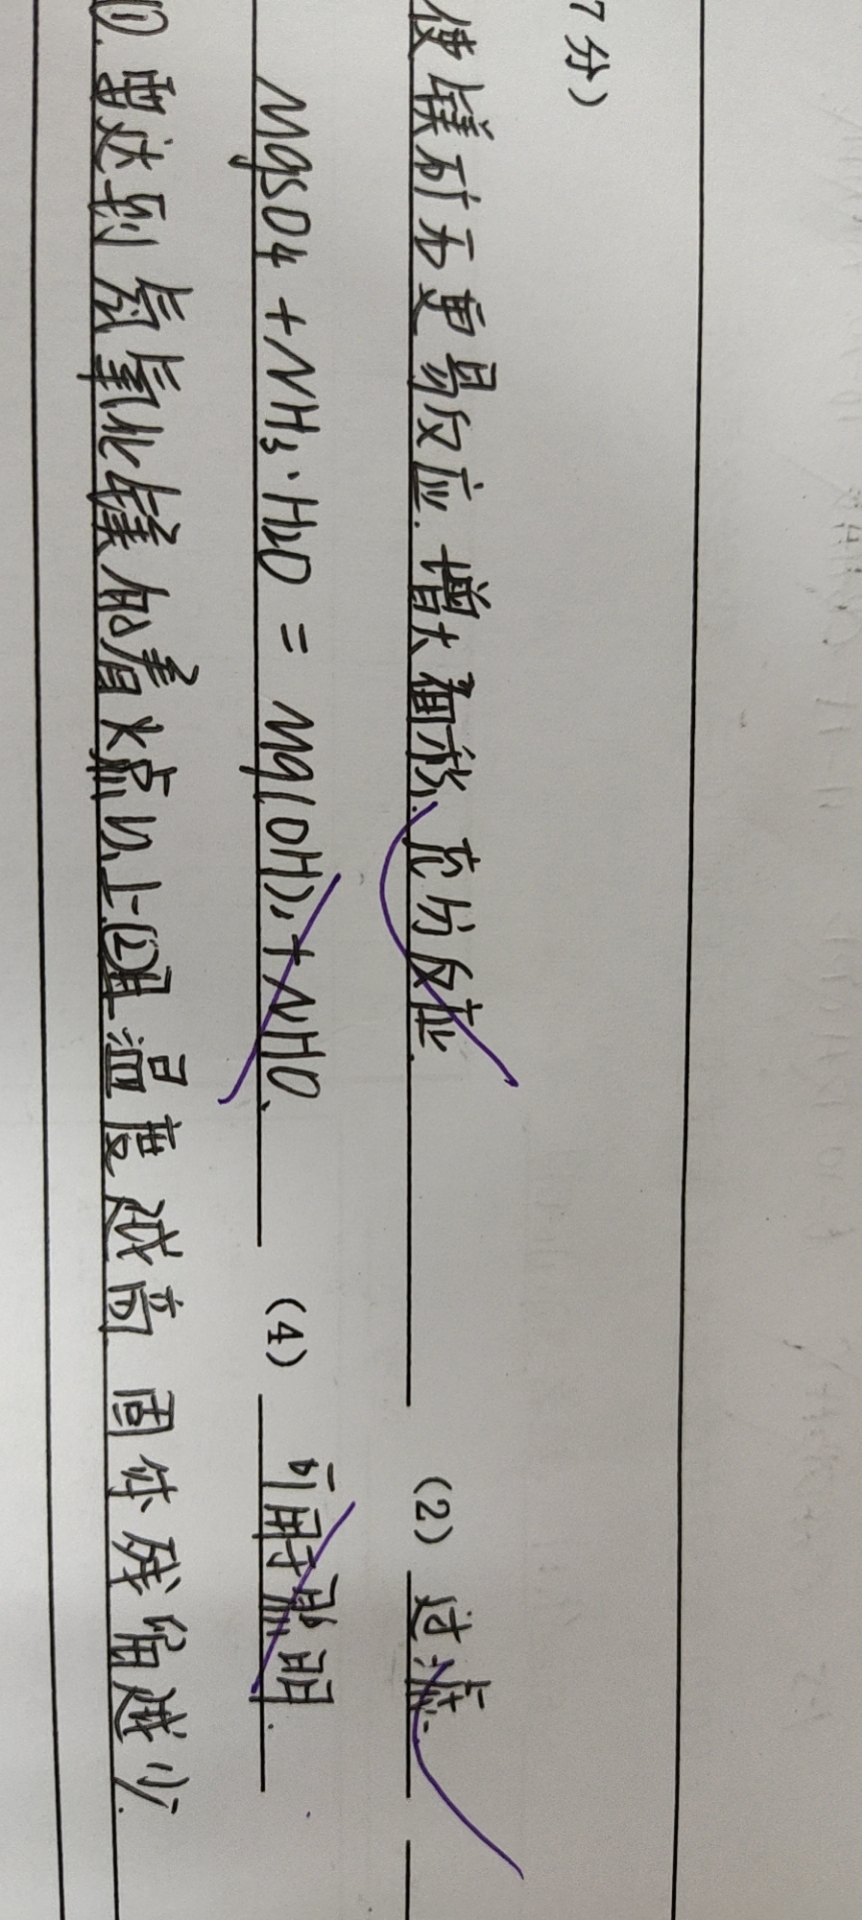 7分)
使镁矿石更易反应.增大面积.充分反应. (2) 过滤.
MgSO4 + NH3·H2O = Mg(OH)2 + NHO. (4) 可用于照明.
①.需达到氢氧化镁的着火点以上.②且温度越高 固体残留越少.